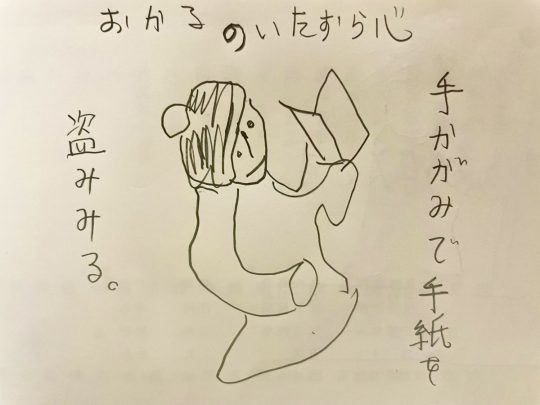 おかるのいたずら心
手かがみで手紙を
盗みみる。